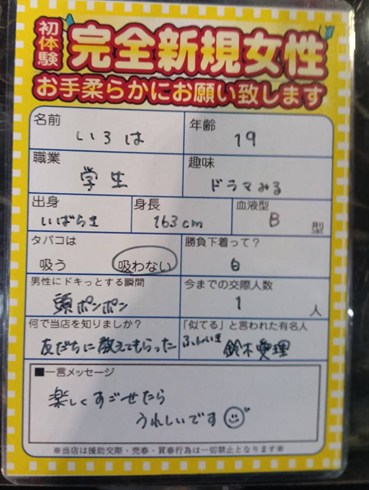 初体験 完全新規女性
お手柔らかにお願い致します
名前 いろは 年齢 19
職業 学生 趣味 ドラマみる
出身 いばらき 身長 163cm 血液型 B 型
タバコは 吸う 吸わない 勝負下着って? 白
男性にドキっとする瞬間 頭ポンポン 今までの交際人数 1 人
何で当店を知りましたか? 友だちに教えてもらった 「似てる」と言われた有名人 ふんいき 鈴木愛理
■一言メッセージ
楽しくすごせたら
うれしいです
※当店は援助交際・売春・買春行為は一切禁止となります※